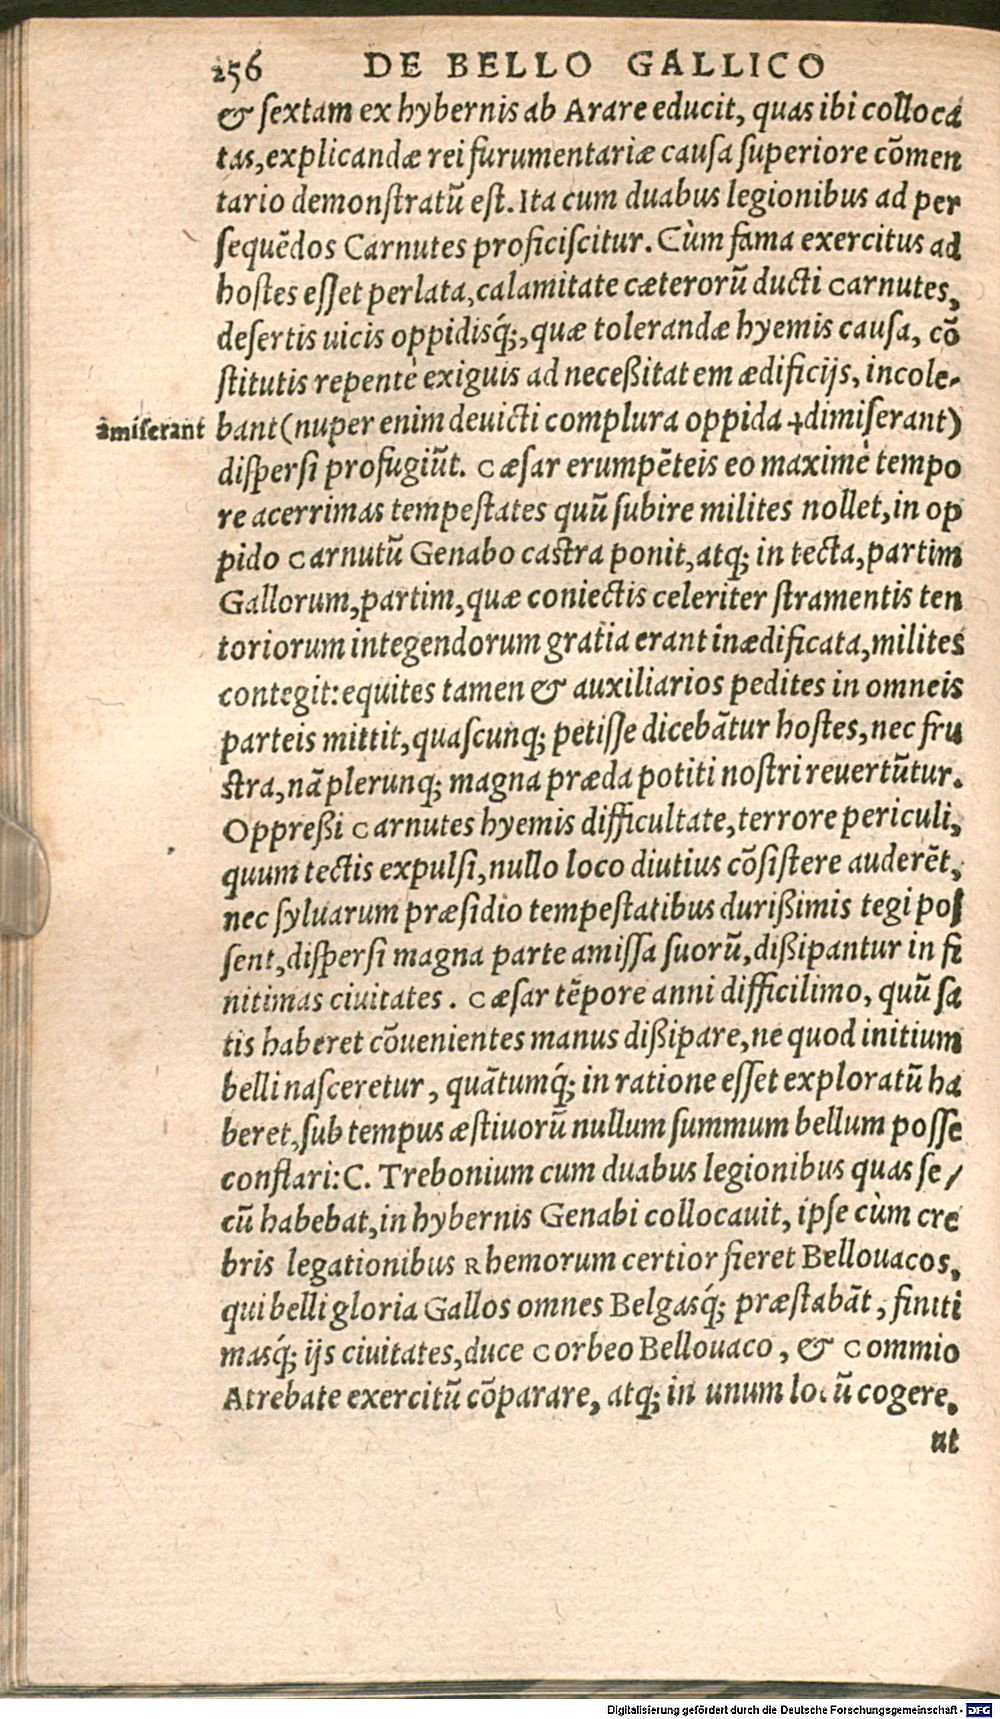 256 DE BELLO GALLICO
& ſextam ex hybernis ab Arare educit, quas ibi collocа
tas, explicandæ rei furumentariæ cauſa ſuperiore cõmen
tario demonſtratũ eſt. Ita cum duabus legionibus ad per
ſequẽdos Carnutes proficiſcitur. Cùm fama exercitus ad
hoſtes eſſet perlata, calamitate cæterorũ ducti Carnutes,
deſertis uicis oppidisq́;, quæ tolerandæ hyemis cauſa, cõ
ſtitutis repentè exiguis ad neceßitatem ædificijs, incole-
amiſerant bant (nuper enim deuicti complura oppida ⁜dimiſerant)
diſperſi profugiũt. Cæſar erumpẽteis eo maximè tempo
re acerrimas tempeſtates quũ ſubire milites nollet, in op
pido Carnutũ Genabo caſtra ponit, atq; in tecta, partim
Gallorum, partim, quæ coniectis celeriter ſtramentis ten
toriorum integendorum gratia erant inædificata, milites
contegit: equites tamen & auxiliarios pedites in omneis
parteis mittit, quaſcunq; petiſſe dicebãtur hoſtes, nec fru
ſtra, nã plerunq; magna præda potiti noſtri reuertũtur.
Oppreßi Carnutes hyemis difficultate, terrore periculi,
quum tectis expulſi, nullo loco diutius cõſiſtere auderẽt,
nec ſyluarum præſidio tempeſtatibus durißimis tegi poſ
ſent, diſperſi magna parte amiſſa ſuorũ, dißipantur in fi
nitimas ciuitates. Cæſar tẽpore anni difficilimo, quũ ſa
tis haberet cõuenientes manus dißipare, ne quod initium
belli naſceretur, quãtumq́; in ratione eſſet exploratũ ha
beret, ſub tempus æſtiuorũ nullum ſummum bellum poſſe
conflari: C. Trebonium cum duabus legionibus quas ſe/
cũ habebat, in hybernis Genabi collocauit, ipſe cùm cre
bris legationibus Rhemorum certior fieret Bellouacos,
qui belli gloria Gallos omnes Belgasq́; præſtabãt, finiti
masq́; ijs ciuitates, duce Corbeo Bellouaco, & Commio
Atrebate exercitũ cõparare, atq; in unum locũ cogere,
ut
Digitalisierung gefördert durch die Deutsche Forschungsgemeinschaft - DFG